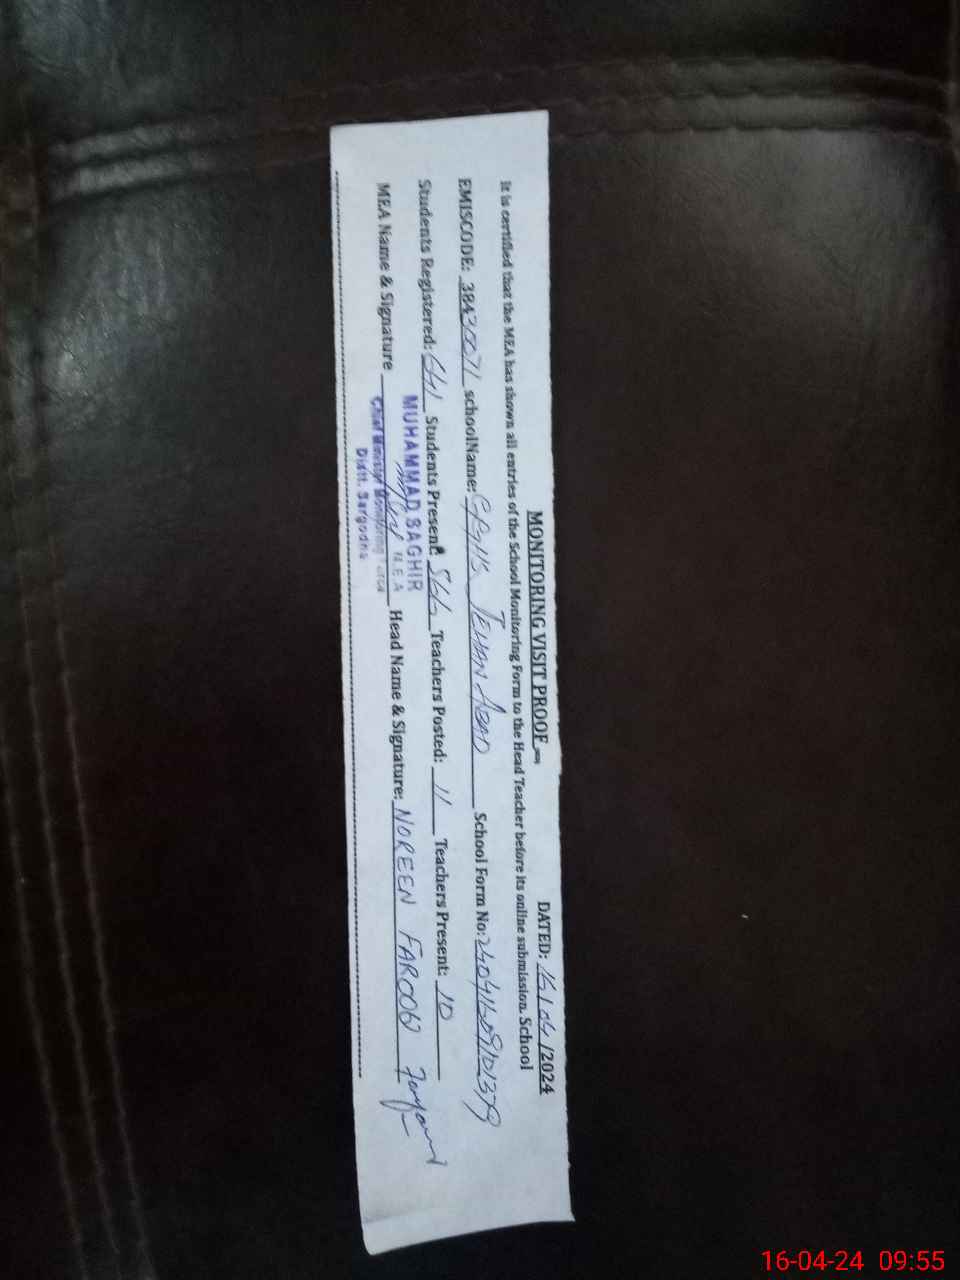 MONITORING VISIT PROOF DATED: 16/04/2024
It is certified that the MEA has shown all entries of the School Monitoring Form to the Head Teacher before its online submission. School
EMISCODE: 38430071 schoolName: JEHAN ABAD School Form No:
Students Registered: Students Present: Teachers Posted: 11 Teachers Present: 10
MUHAMMAD SAGHIR
MEA Name & Signature M.E.A Head Name & Signature: NOREEN FAROOQ
Chief Minister Monitoring Force
Distt. Sargodha
16-04-24 09:55